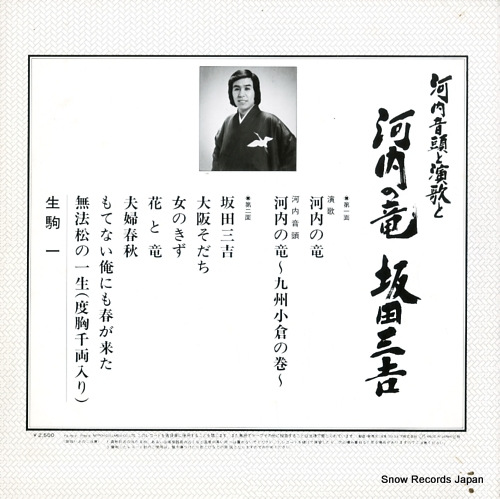 河内音頭と演歌と
河内の竜 坂田三吉
■第一面
演歌
河内の竜
河内音頭
河内の竜〜九州小倉の巻〜
■第二面
坂田三吉
大阪そだち
女のきず
花と竜
夫婦春秋
もてない俺にも春が来た
無法松の一生(度胸千両入り)
生駒 一
¥2,500
Snow Records Japan